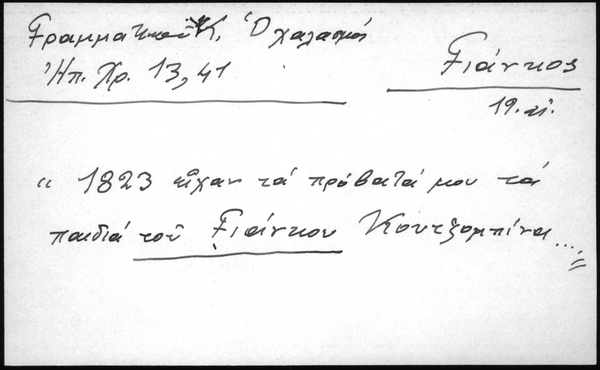 Γραμματικοῦ Κ. Ὁ χαλασμός
Ἠπ. Χρ. 13, 41
Γιάνκος
19. αἰ.
" 1823 εἶχαν τά πρόβατά μου τά
παιδιά τοῦ Γιάνκου Κουτζομπίνα....."